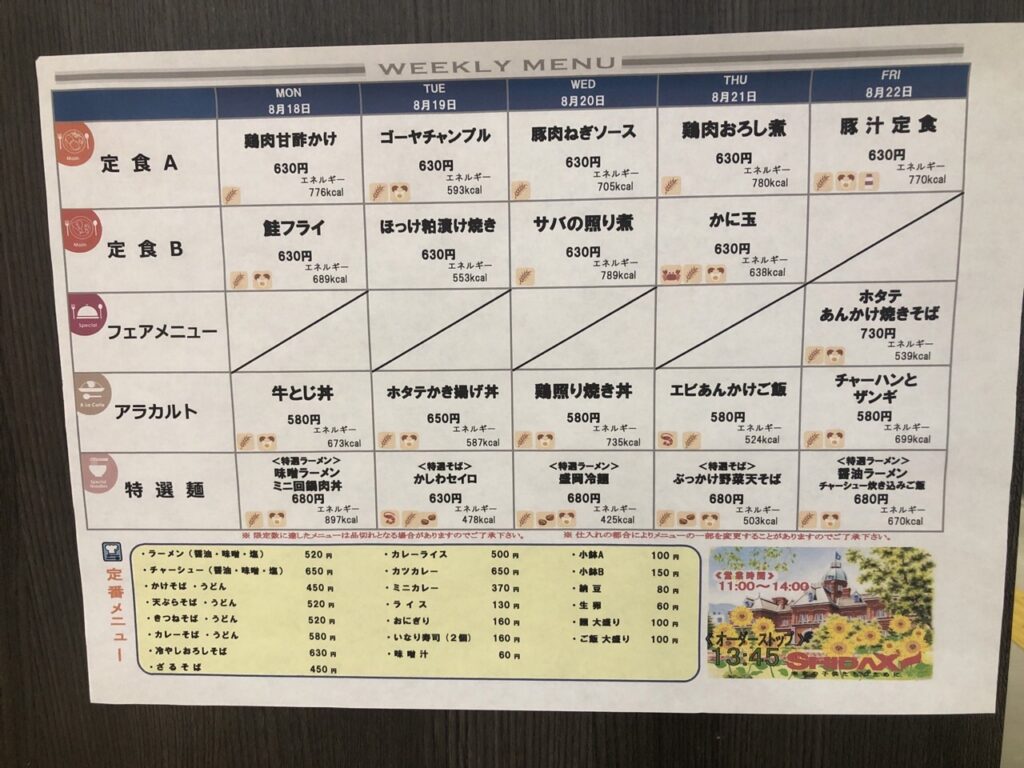 WEEKLY MENU
MON TUE WED THU FRI
8月18日 8月19日 8月20日 8月21日 8月22日
Main
定食A
鶏肉甘酢かけ
630円
エネルギー
776kcal
ゴーヤチャンプル
630円
エネルギー
593kcal
豚肉ねぎソース
630円
エネルギー
705kcal
鶏肉おろし煮
630円
エネルギー
780kcal
豚汁定食
630円
エネルギー
770kcal
Main
定食B
鮭フライ
630円
エネルギー
689kcal
ほっけ粕漬け焼き
630円
エネルギー
553kcal
サバの照り煮
630円
エネルギー
789kcal
かに玉
630円
エネルギー
638kcal
Special
フェアメニュー
ホタテ
あんかけ焼きそば
730円
エネルギー
539kcal
A La Carte
アラカルト
牛とじ丼
580円
エネルギー
673kcal
ホタテかき揚げ丼
650円
エネルギー
587kcal
鶏照り焼き丼
580円
エネルギー
735kcal
エビあんかけご飯
580円
エネルギー
524kcal
チャーハンと
ザンギ
580円
エネルギー
699kcal
Special
Noodles
特選麺
＜特選ラーメン＞
味噌ラーメン
ミニ回鍋肉丼
680円
エネルギー
897kcal
＜特選そば＞
かしわセイロ
630円
エネルギー
478kcal
＜特選ラーメン＞
盛岡冷麺
680円
エネルギー
425kcal
＜特選そば＞
ぶっかけ野菜天そば
680円
エネルギー
503kcal
＜特選ラーメン＞
醤油ラーメン
チャーシュー炊き込みご飯
680円
エネルギー
670kcal
※ 限定数に達したメニューは品切れとなる場合がありますのでご了承下さい。 ※ 仕入れの都合によりメニューの一部を変更することがありますのでご了承下さい。
定番メニュー
・ラーメン（醤油・味噌・塩） 520円
・チャーシュー（醤油・味噌・塩） 650円
・かけそば ・うどん 450円
・天ぷらそば ・うどん 520円
・きつねそば ・うどん 520円
・カレーそば ・うどん 580円
・冷やしおろしそば 630円
・ざるそば 450円
・カレーライス 500円
・カツカレー 650円
・ミニカレー 370円
・ライス 130円
・おにぎり 160円
・いなり寿司（２個） 160円
・味噌汁 60円
・小鉢A 100円
・小鉢B 150円
・納豆 80円
・生卵 60円
・麺 大盛り 100円
・ご飯 大盛り 100円
＜営業時間＞
11:00～14:00
＜オーダーストップ＞
13:45
SHIDAX